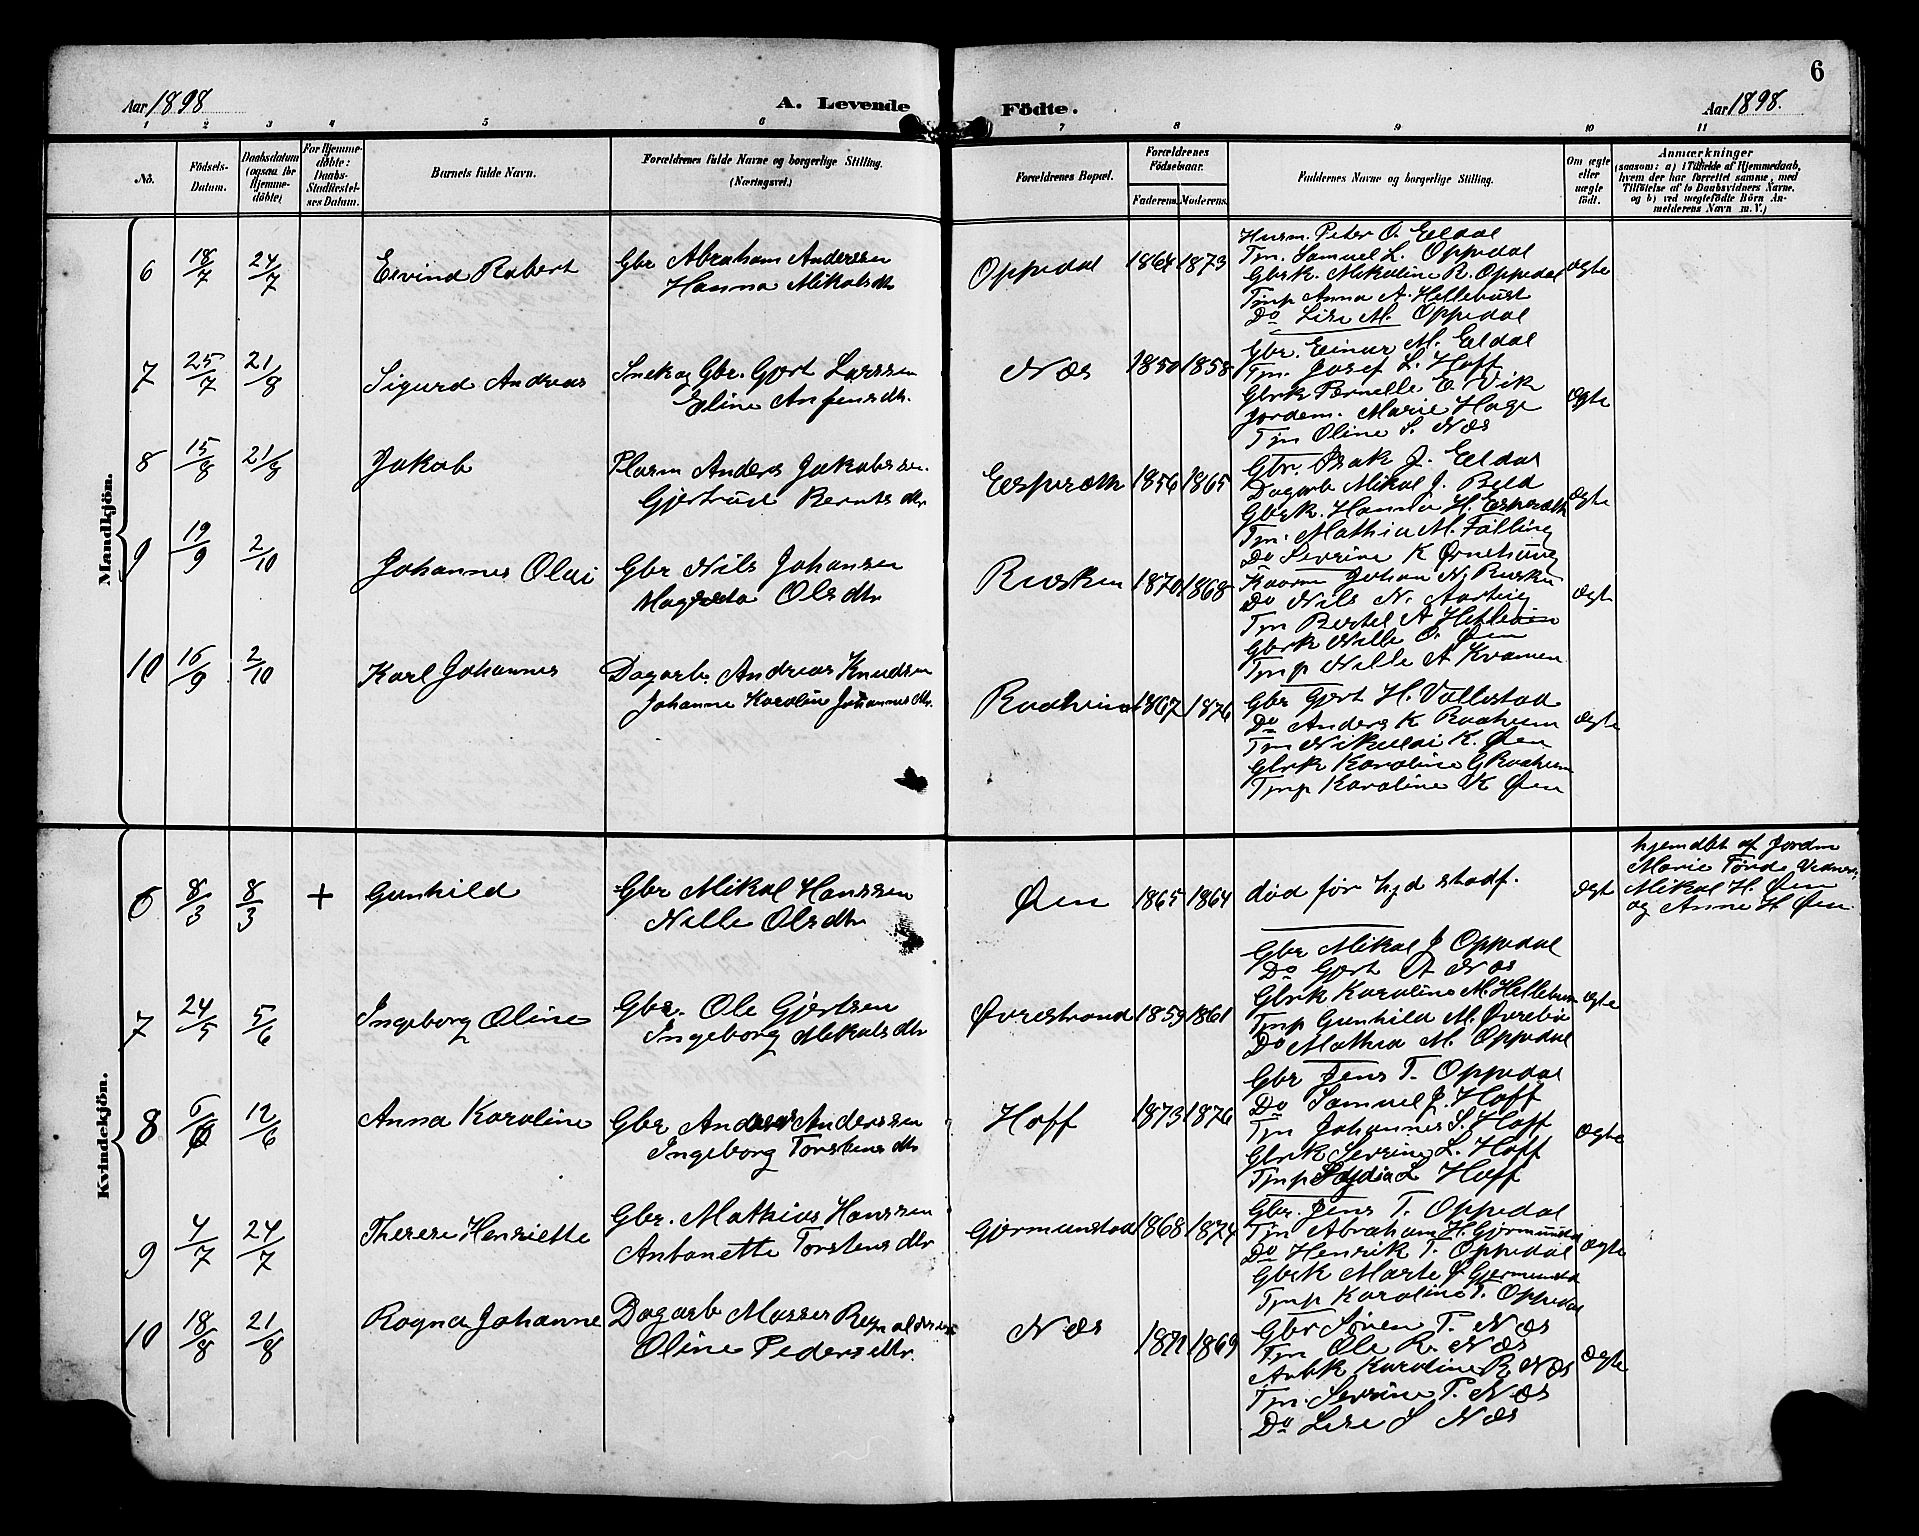 6
Aar 1898
A. Levende Födte.
Aar 1898.
1 2 3 4 5 6 7 8 9 10 11
No.
Födsels-Datum.
Daabsdatum (ogsaa for Hjemme-döbte)
For Hjemme-döbte: Daabs-Stadfæstel-ses Datum.
Barnets fulde Navn.
Forældrenes fulde Navne og borgerlige Stilling. (Næringsvei.)
Forældrenes Bopæl.
Forældrenes Födselsaar.
Faderens. Moderens.
Faddernes Navne og borgerlige Stilling.
Om ægte eller uægte födt.
Anmærkninger
(saasom: a) i Tilfælde af Hjemmedaab, hvem der har forrettet samme, med Tilföielse af to Daabsvidners Navne, og b) ved uægtefödte Börn An-melderens Navn m. V.)
Mandkjön.
6 18/7 24/7 Eivind Robert
Gbr Abraham Anderssen
Hanna Mikalsdtr
Oppedal 1864 1873
Husm. Peter O. Eldal
Tjn. Samuel L. Oppedal
Gbrk. Mikaline R. Oppedal
Tjnp Anna A. Hellebust
Do Lise M. Oppedal
ægte
7 25/7 21/8 Sigurd Andreas
Snek og Gbr. Gjert Larssen
Eline Anfinsdtr.
Næs 1850 1858
Gbr. Einar M. Eldal
Tjn. Josef L. Hoff
Gbrk Pernelle E. Vik
Jordem. Marie Hage
Tjn Oline S. Næs
ægte
8 15/8 21/8 Jakob
Plasm Anders Jakobssen
Gjertrud Berntsdtr
Esperæth 1856 1865
Gbr. Isak J. Eldal
Dagarb Mikal J. Beld
Gbrk. Hanna H. Esperæth
Tjn. Mathia M. Fölling
Do Severine K Ørnehaug
ægte
9 19/9 2/10 Johannes Olai
Gbr Nils Johansen
Olsdtr
Risken 1870 1868
Kaarm Johan N. Risken
Do Nils N. Aarteig
Tjn Bertel A
Gbrk Nille O. Øen
Tjnp Nille A Kvamen
ægt
10 16/9 2/10 Karl Johannes
Dagarb. Andreas Knudsen
Johanne Karoline Johannesdtr.
Raaheim 1867 1876
Gbr Gjert H. Vallestad
Do Anders K Raaheim
Tjn Nikulai K. Øen
Gbrk Karoline G Raaheim
Tjnp Karoline K Øen
ægte
Kvindekjön.
6 8/3 8/3 + Gunhild
Gbr Mikal Hanssen
Nille Olsdtr
Øen 1865 1864
død før hjd stadf.
ægt
hjemdbt af Jordm
Marie Førde Vidner:
Mikal H. Øen
og Anne H. Øen
7 24/5 5/6 Ingeborg Oline
Gbr. Ole Gjertsen
Ingeborg Mikalsdtr
Øvrestrand 1859 1861
Gbr Mikal J Oppedal
Do Gjert A Næs
Gbrk Karoline M.
Tjnp Gunhild M. Øvrebø
Do Mathea M. Oppedal
ægte
8 5/6 12/6 Anna Karoline
Gbr Anders Anderssen
Ingeborg Torstensdtr
Hoff 1873 1876
Gbr Jens T. Oppedal
Do Samuel J. Hoff
Tjn Johannes S. Hoff
Gbrk Severine L. Hoff
Tjnp L Hoff
ægte
9 4/7 24/7 Therese Henriette
Gbr. Mathias Hanssen
Antonette Torstensdtr
Gjermunstad 1868 1874
Gbr. Jens T. Oppedal
Tjn Abraham H. Gjermunstad
Do Henrik T. Oppedal
Gbrk Marte J Gjermunstad
Tjnp Karoline T. Oppedal
ægte
10 18/8 21/8 Ragna Johanne
Dagarb Masser Regnaldsen
Oline Pedersdtr.
Næs 1872 1869
Gbr Søren T. Næs
Tjn Ole R. Næs
Arbk Karoline R Næs
Tjn. Severine T. Næs
Do Lise S Næs
ægte